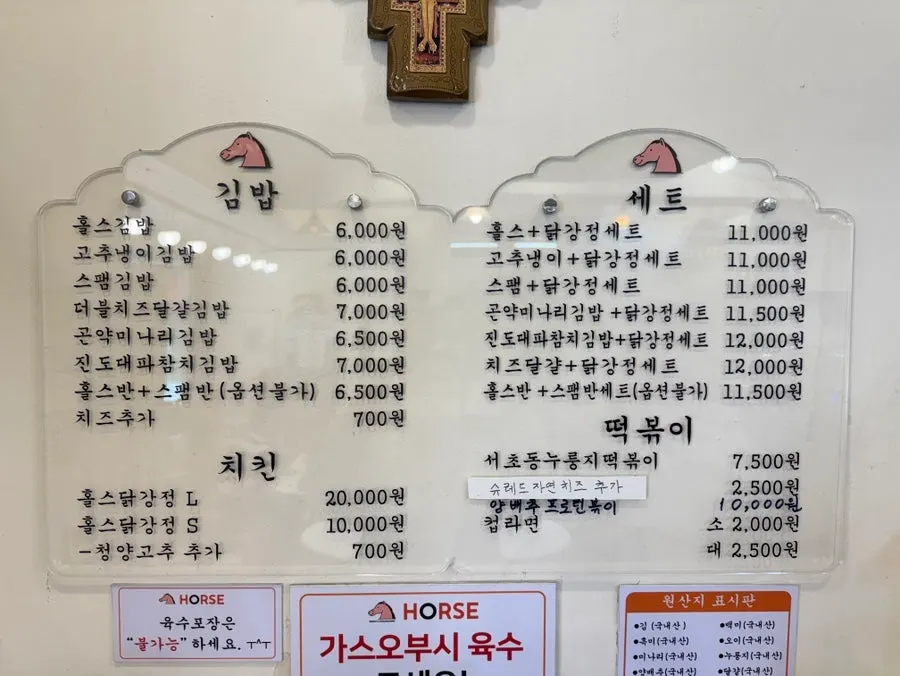 김밥
홀스김밥 6,000원
고추냉이김밥 6,000원
스팸김밥 6,000원
더블치즈달걀김밥 7,000원
곤약미나리김밥 6,500원
진도대파참치김밥 7,000원
홀스반+스팸반(옵션불가) 6,500원
치즈추가 700원
치킨
홀스닭강정 L 20,000원
홀스닭강정 S 10,000원
-청양고추 추가 700원
세트
홀스+닭강정세트 11,000원
고추냉이+닭강정세트 11,000원
스팸+닭강정세트 11,000원
곤약미나리김밥+닭강정세트 11,500원
진도대파참치김밥+닭강정세트 12,000원
치즈달걀+닭강정세트 12,000원
홀스반+스팸반세트(옵션불가) 11,500원
떡볶이
서초동누룽지떡볶이 7,500원
슈레드 자연치즈 추가 2,500원
양배추 프로틴볶이 10,000원
컵라면 소 2,000원
대 2,500원
HORSE
육수포장은
"불가능"하세요. ㅜ^ㅜ
HORSE
가스오부시 육수
원산지 표시판
●김(국내산) ●백미(국내산)
●흑미(국내산) ●오이(국내산)
●미나리(국내산) ●누룽지(국내산)
●양배추(국내산) ●달걀(국내산)